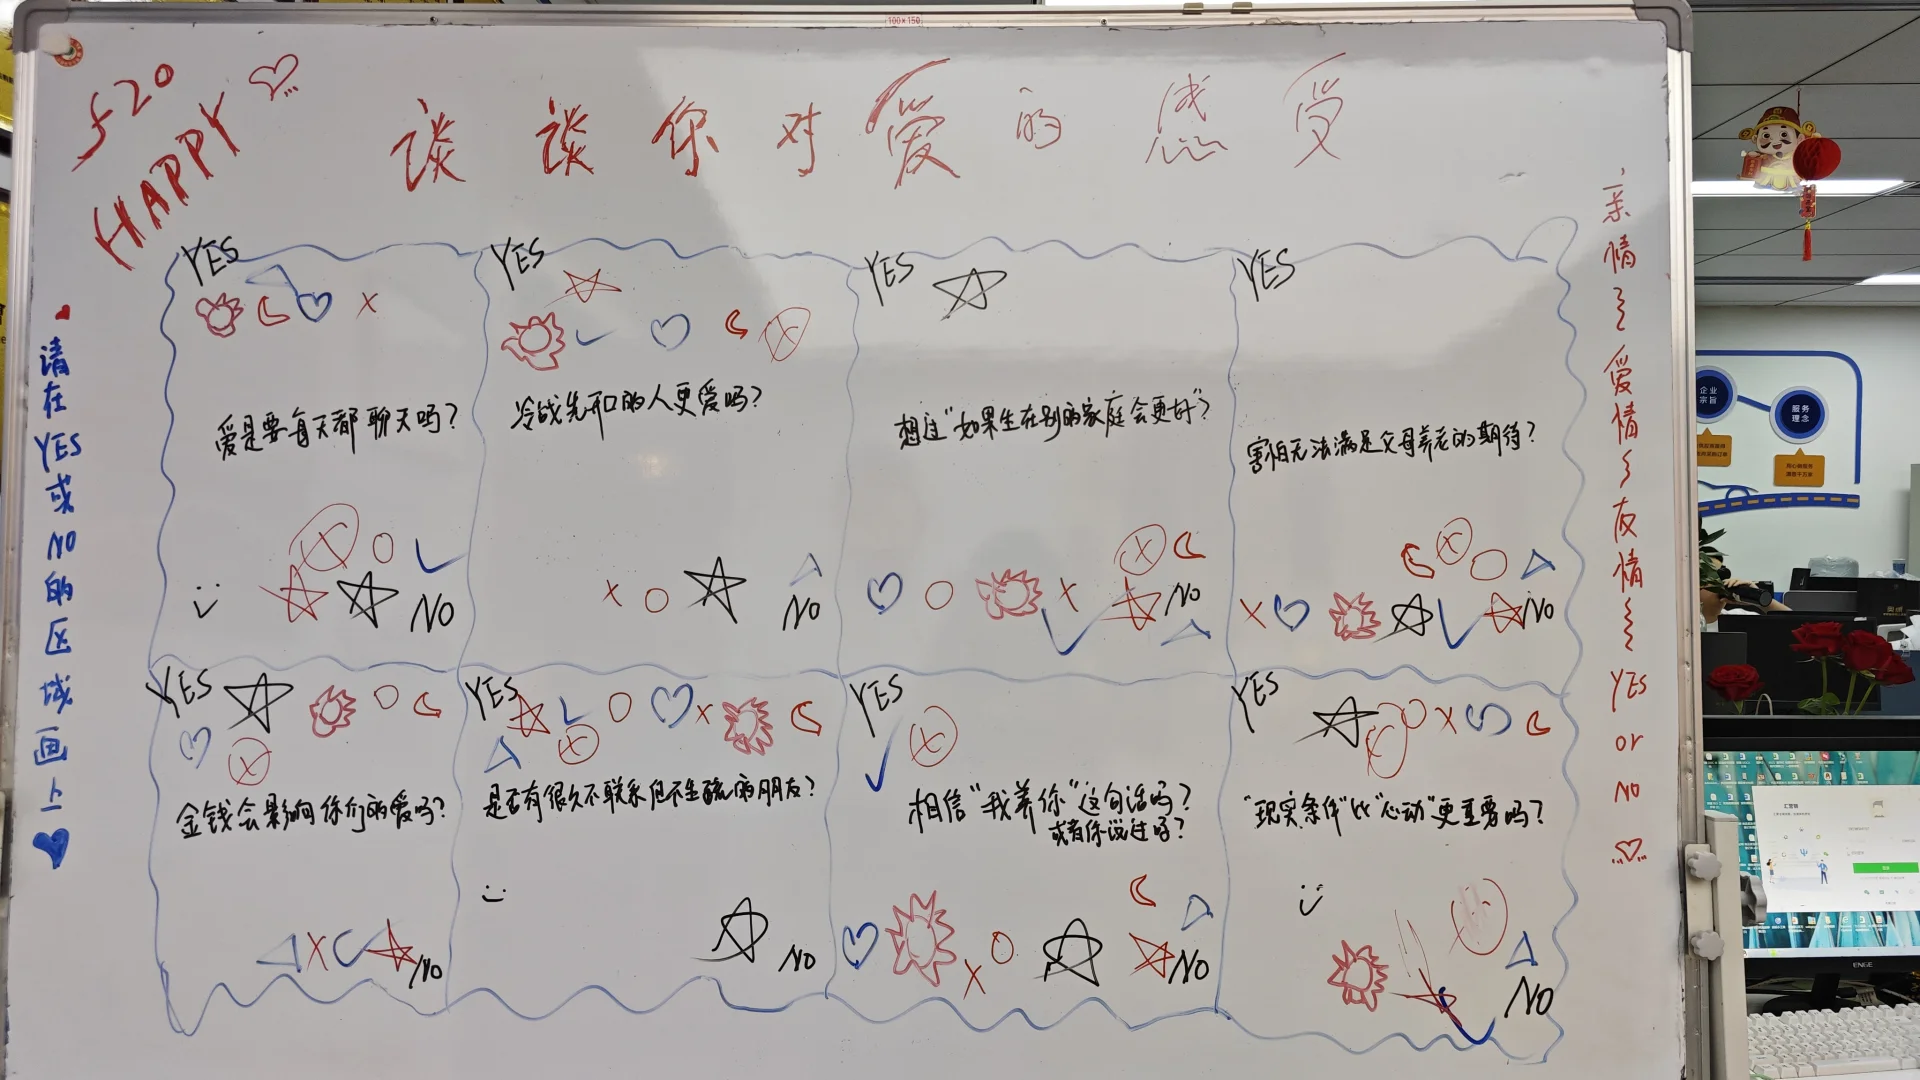 100×150
520
HAPPY
谈谈你对爱的感受
请在YES或NO的区域画上
亲情爱情友情YES or NO
YES
爱是要每天都聊天吗？
NO
YES
冷战先开口的人更爱吗？
NO
YES
想过“如果生在别的家庭会更好”？
NO
YES
害怕无法满足父母养老的期待？
NO
YES
金钱会影响你们的爱吗？
NO
YES
是否有很久不联系但不生疏的朋友？
NO
YES
相信“我养你”这句话吗？
或者你说过吗？
NO
YES
“现实条件”比“心动”更重要吗？
NO
企业
宗旨
服务
理念